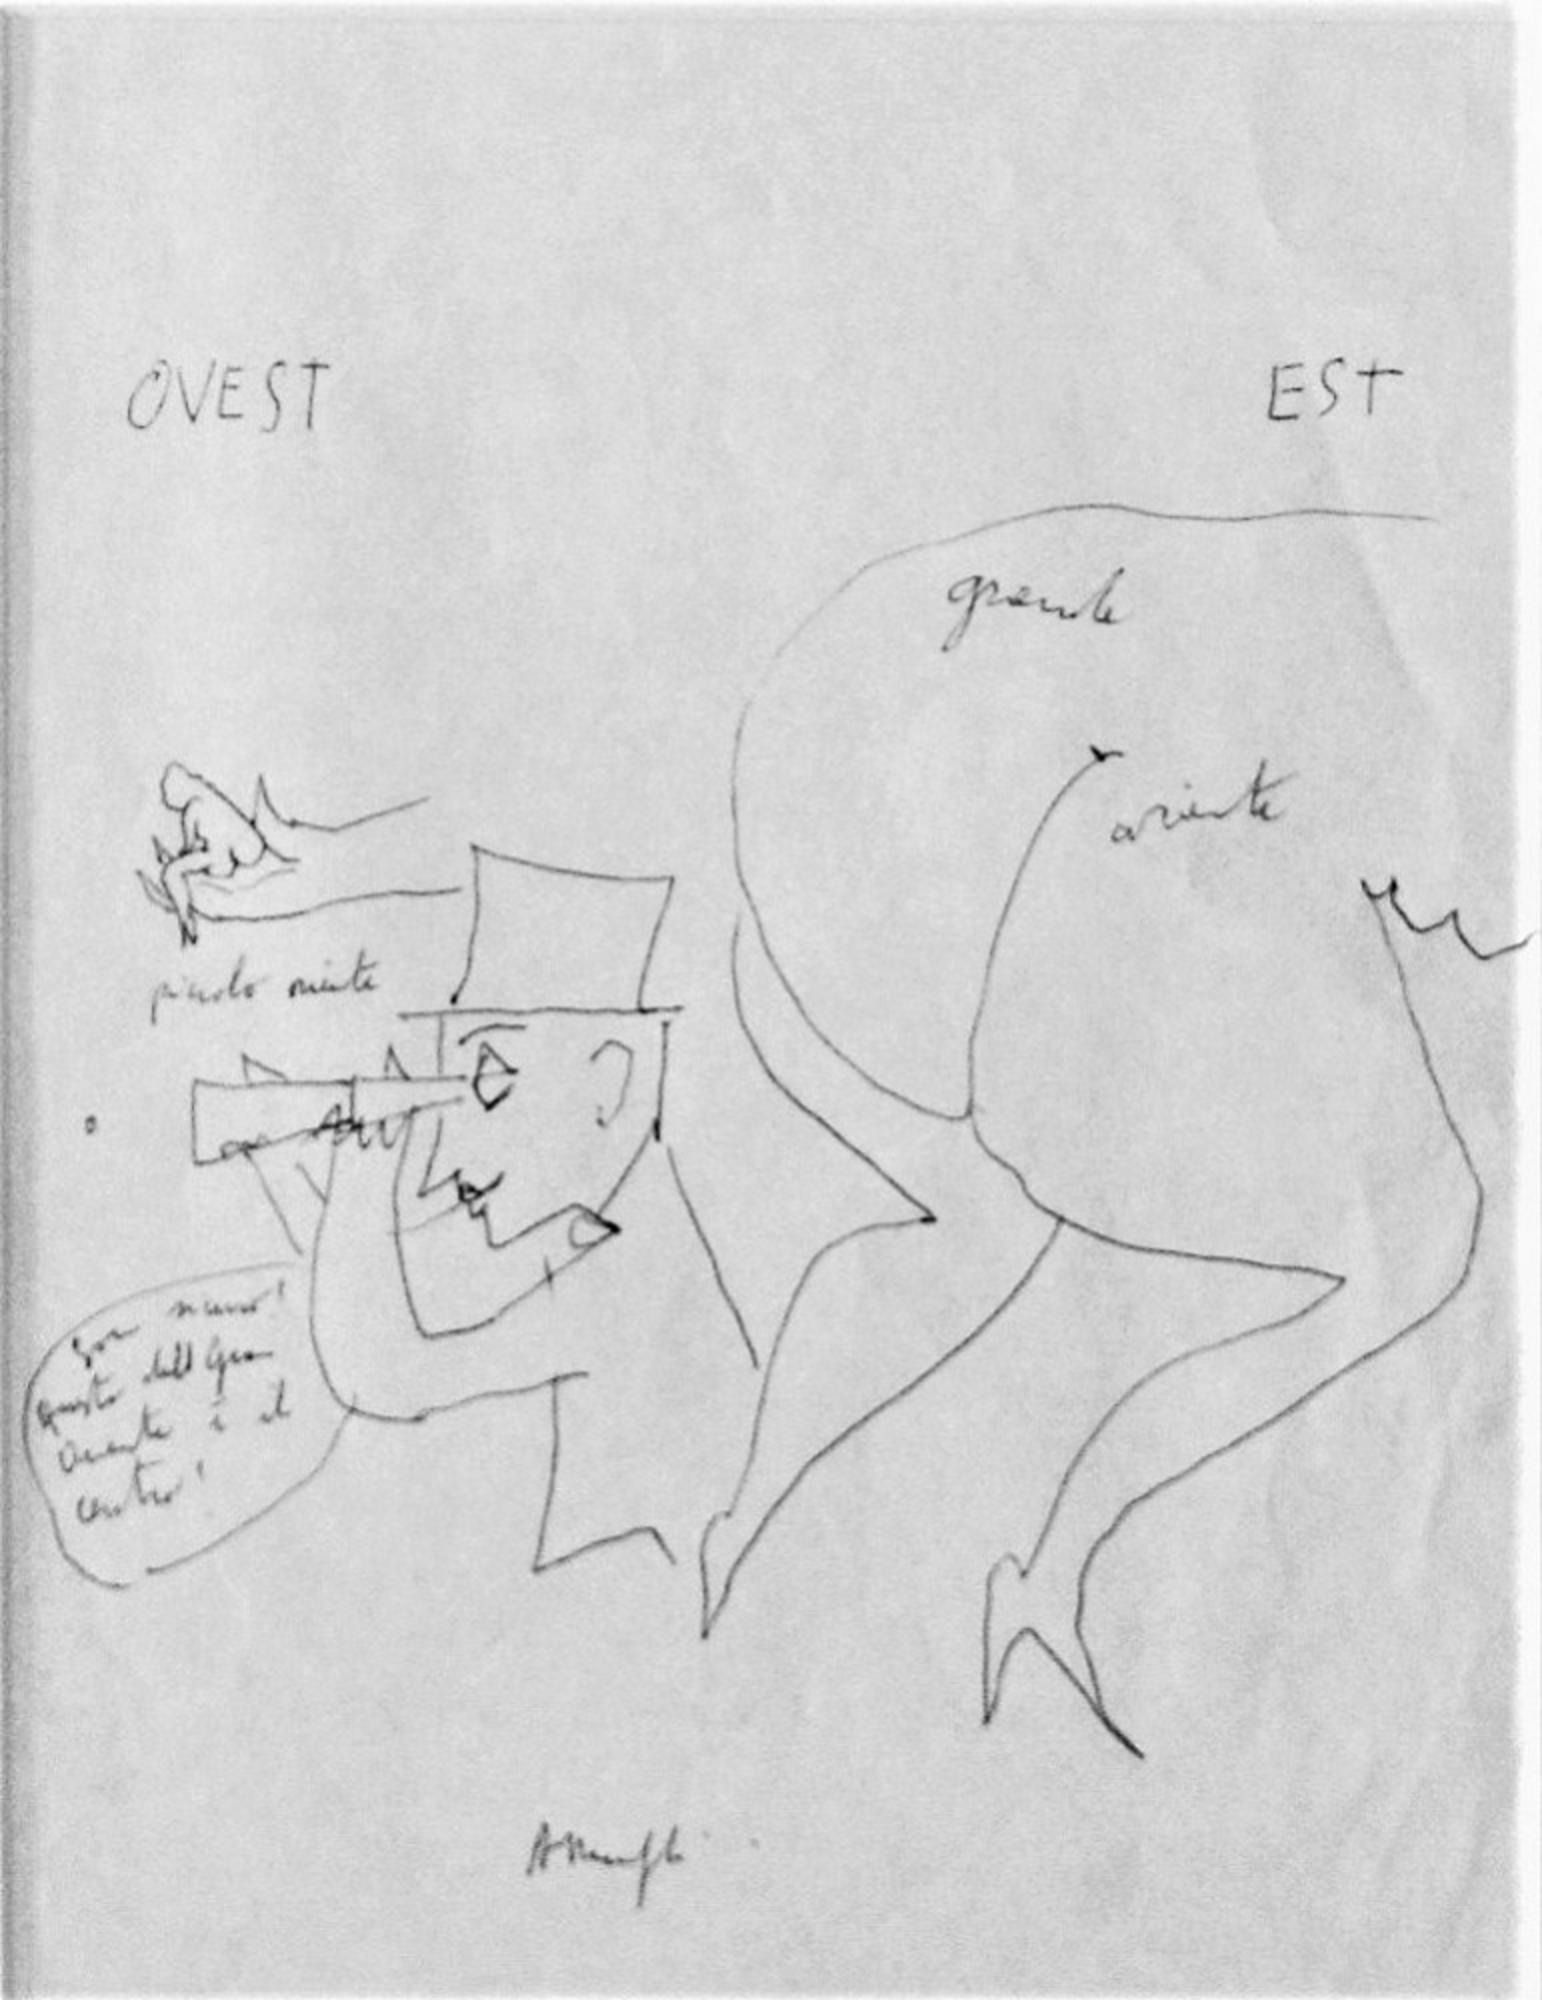 OVEST
EST
grande
oriente
piccolo oriente
Son
Questo dell Gran
Oriente è il
centro!